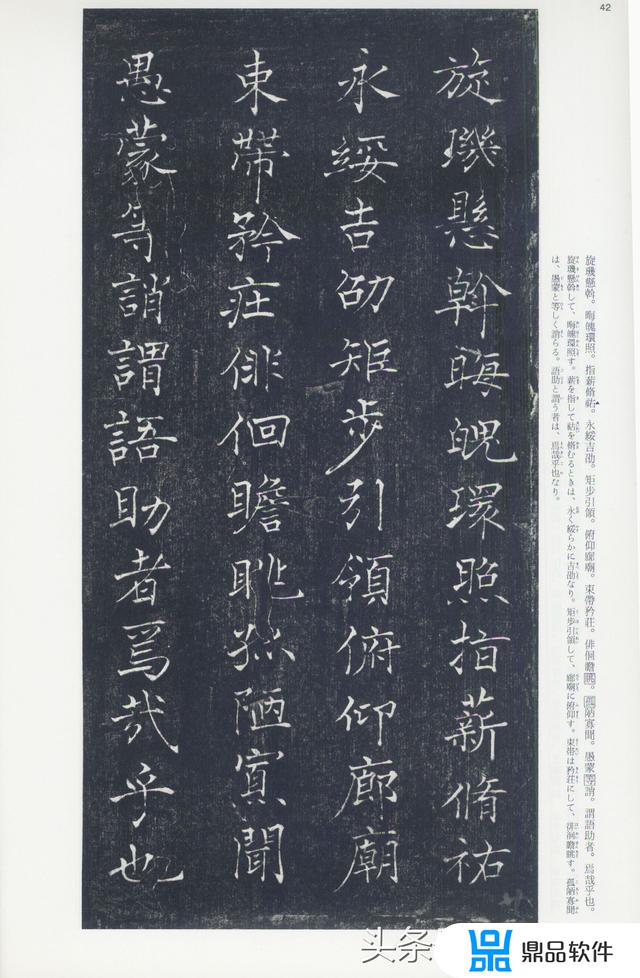 42
旋璣懸斡晦魄環照指薪脩祜
永綏吉劭矩步引領俯仰廊廟
束帶矜莊俳佪瞻眺孤陋寡聞
愚蒙等誚謂語助者焉哉乎也
旋璣懸斡。晦魄環照。指薪脩祜。永綏吉劭。矩步引領。俯仰廊廟。束帶矜莊。俳佪瞻眺。孤陋寡聞。愚蒙等誚。謂語助者。焉哉乎也。
旋璣懸斡して、晦魄環照す。薪を指して祜を脩むるときは、永く綏らかに吉劭なり。矩步引領して、廊廟に俯仰す。束帯は矜荘にして、俳佪瞻眺す。孤陋寡聞
は、愚蒙と等しく誚らる。語助と謂う者は、焉哉乎也なり。
头条
鼎品软件